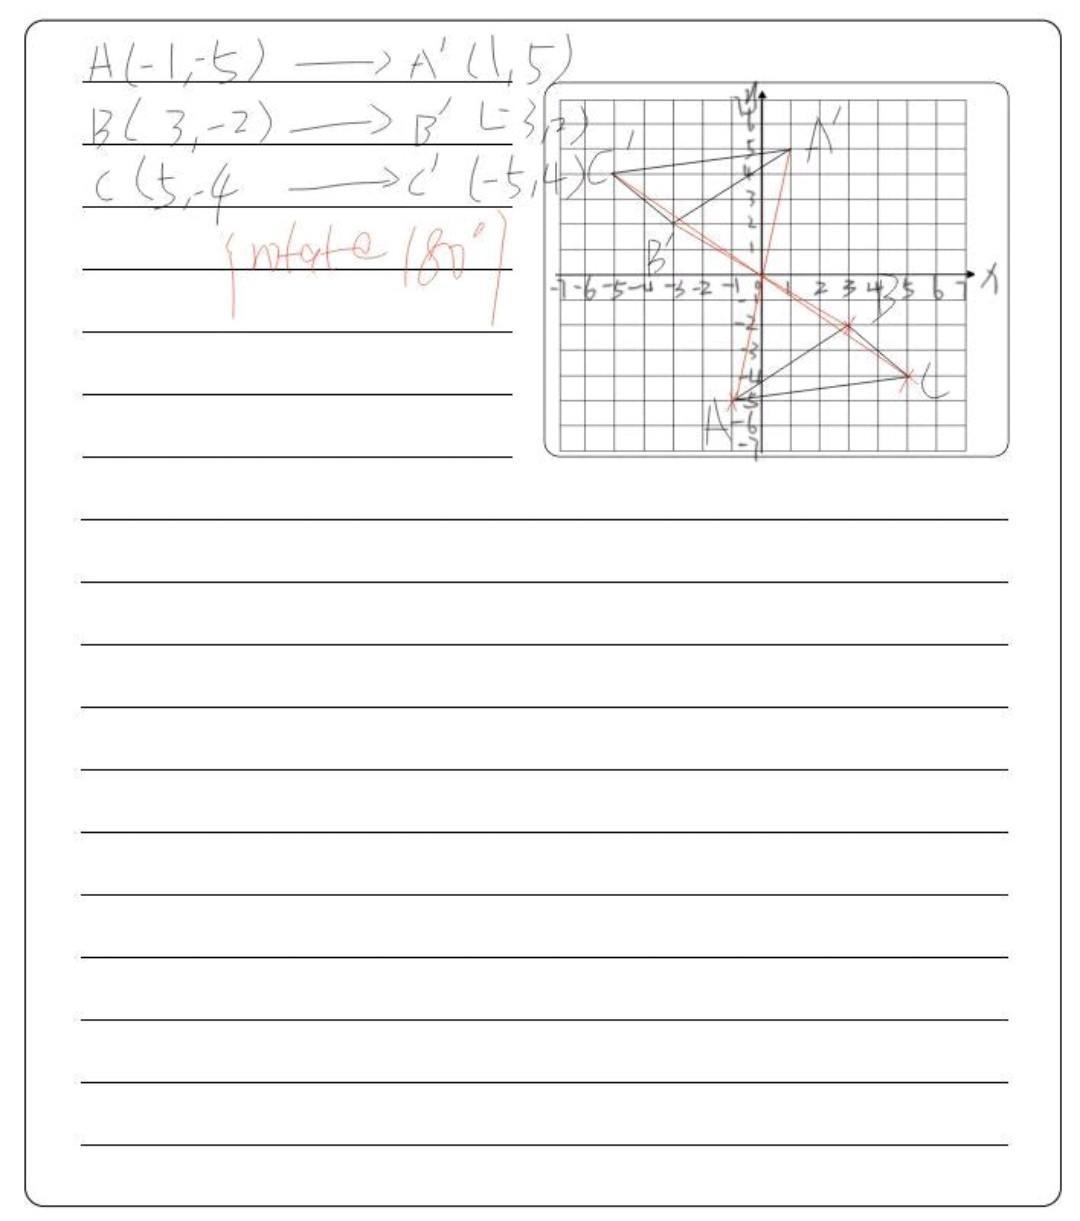 A(-1,-5) → A' (1,5)
B(3,-2) → B' (-3,2)
C(5,-4 → C' (-5,4)
{rotate 180°}
y
7
6
5
4
3
2
1
-7 -6 -5 -4 -3 -2 -1 0 1 2 3 4 5 6 7 x
-1
-2
-3
-4
-5
-6
-7
A'
C'
B'
B
C
A